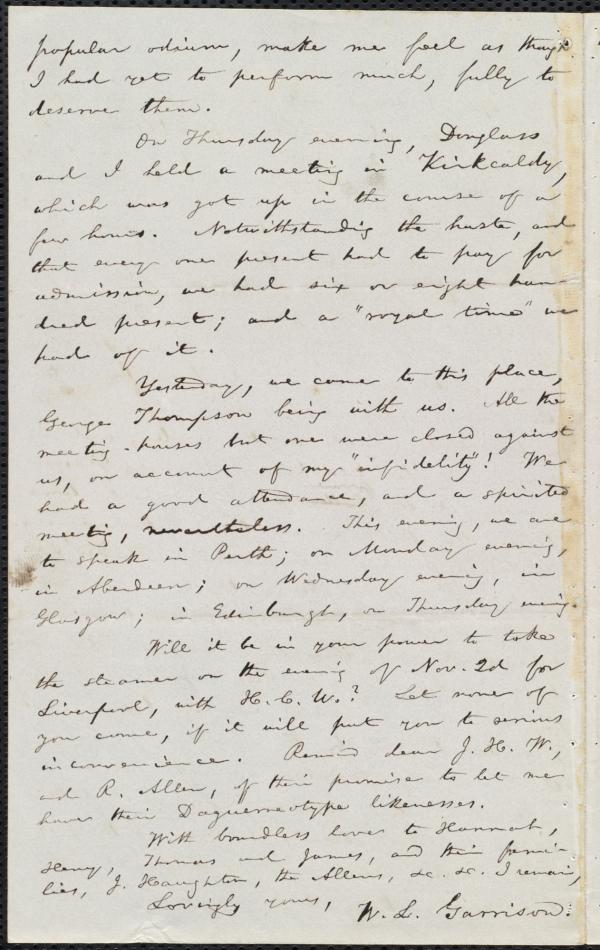 popular odium, make me feel as though
I had yet to perform much, fully to
deserve them.
On Thursday evening, Douglass
and I held a meeting in Kirkcaldy,
which was got up in the course of a
few hours. Notwithstanding the haste, and
that every one present had to pay for
admission, we had six or eight hun-
dred present; and a "royal time" we
had of it.
Yesterday, we came to this place,
George Thompson being with us. All the
meeting-houses but one were closed against
us, on account of my "infidelity"! We
had a good attendance, and a spirited
meeting, nevertheless. This evening, we are
to speak in Perth; on Monday evening,
in Aberdeen; on Wednesday evening, in
Glasgow; in Edinburgh, on Thursday evening.
Will it be in your power to take
the steamer on the evening of Nov. 2d for
Liverpool, with H. C. W.? Let none of
you come, if it will put you to serious
inconvenience. Remind dear J. H. W.,
and R. Allen, of their promise to let me
have their Daguerreotype likenesses.
With boundless love to Hannah,
Henry, Thomas and James, and their fami-
lies, J. Haughton, the Allens, &c. &c. I remain,
Lovingly yours,
W. L. Garrison.